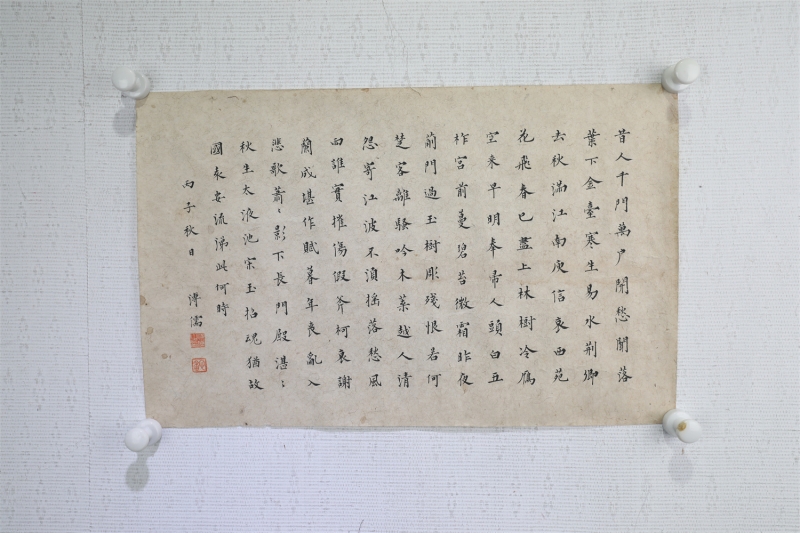 昔人千門萬户開愁聞落
葉下金臺寒生易水荆卿
去秋滿江南庾信哀西苑
花飛春已盡上林樹冷鴈
空來早明奉帚人頭白五
柞宮前蔓碧苔微霜昨夜
荊門過玉樹彫殘恨若何
楚客離騷吟木葉越人清
怨寄江波不須搖落愁風
雨誰實摧傷假斧柯衰謝
蘭成堪作賦暮年喪亂入
悲歌蕭〻影下長門殿湛〻
秋生太液池宋玉招魂猶故
國袁安流涕此何時
丙子秋日 溥儒